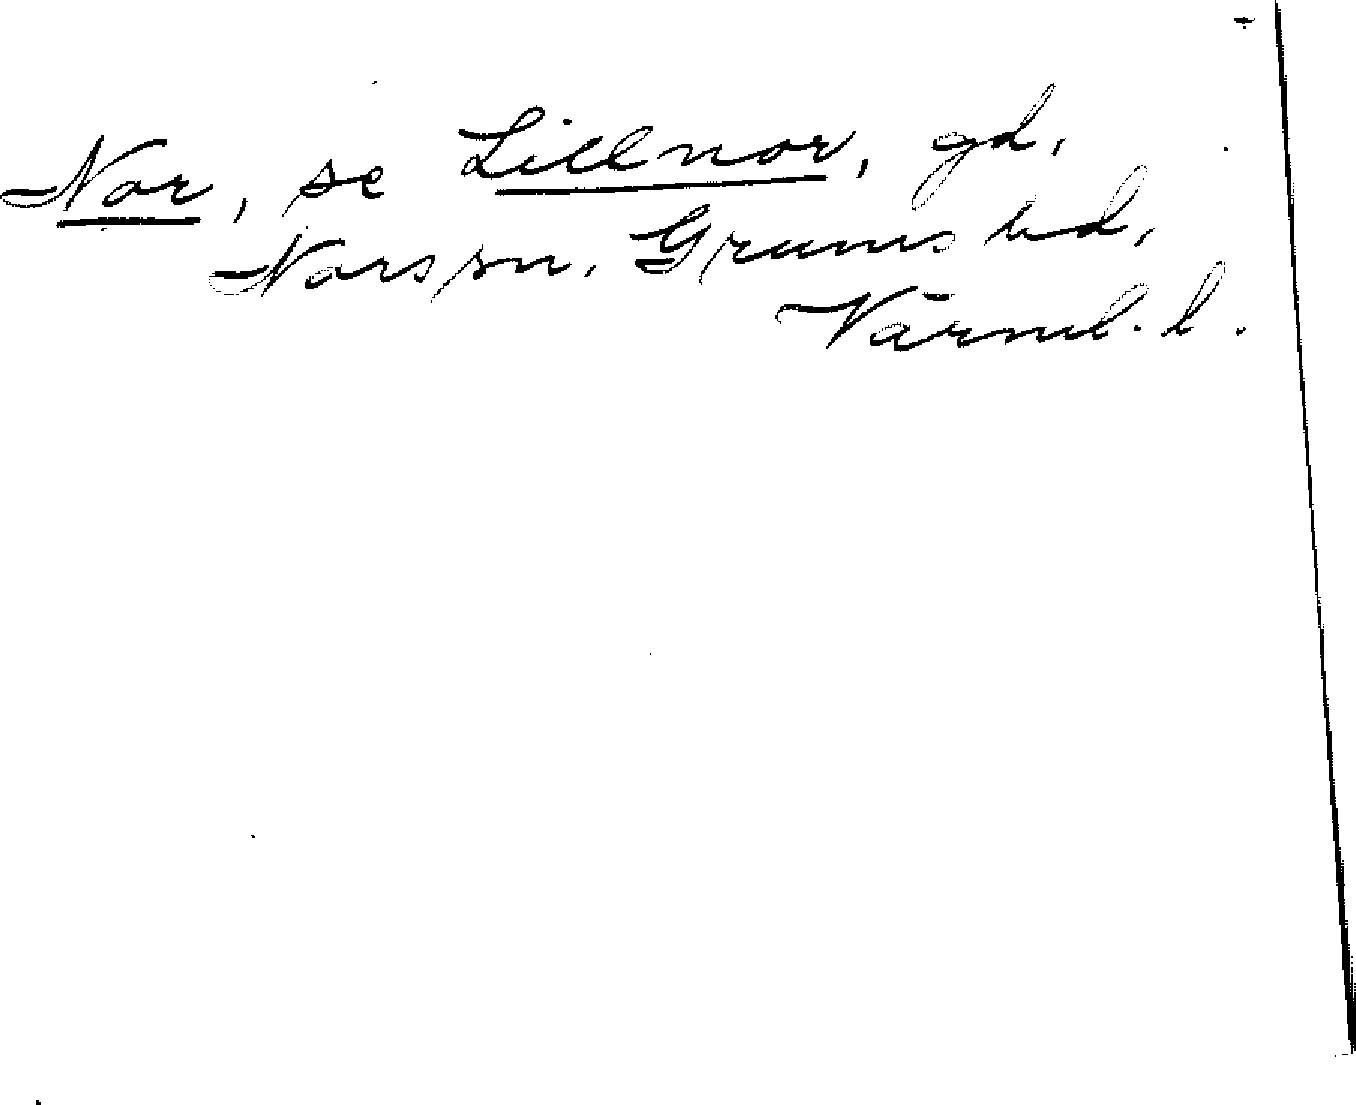 Nor, se Lillnor, gd,
Nors sn, Grums hd,
Värml. l.